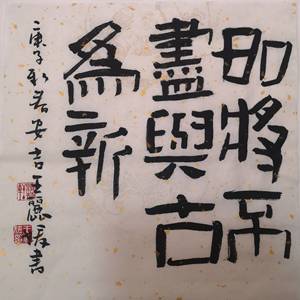 如將不
盡與古
為新
庚子安吉王麗書